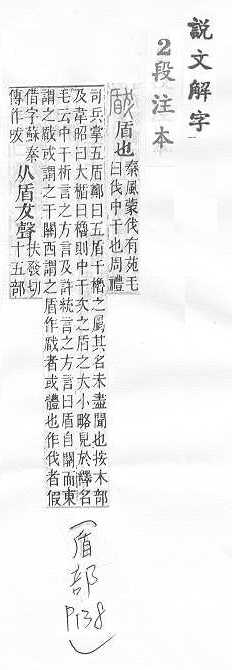 說文解字
2段注本
瞂 盾也 秦風蒙伐有苑毛
曰伐中干也周禮
司兵掌五盾鄭曰五盾干櫓之屬其名未盡聞也按木部
及韋昭曰大楯曰櫓則中干次之盾之大小略見於釋名
毛云中干析言之方言及許統言之方言曰盾自關而東
謂之瞂或謂之干關西謂之盾作瞂者或體也作伐者假
借字蘇秦
傳作㕹
从盾犮聲
扶發切
十五部
(盾部 P138)